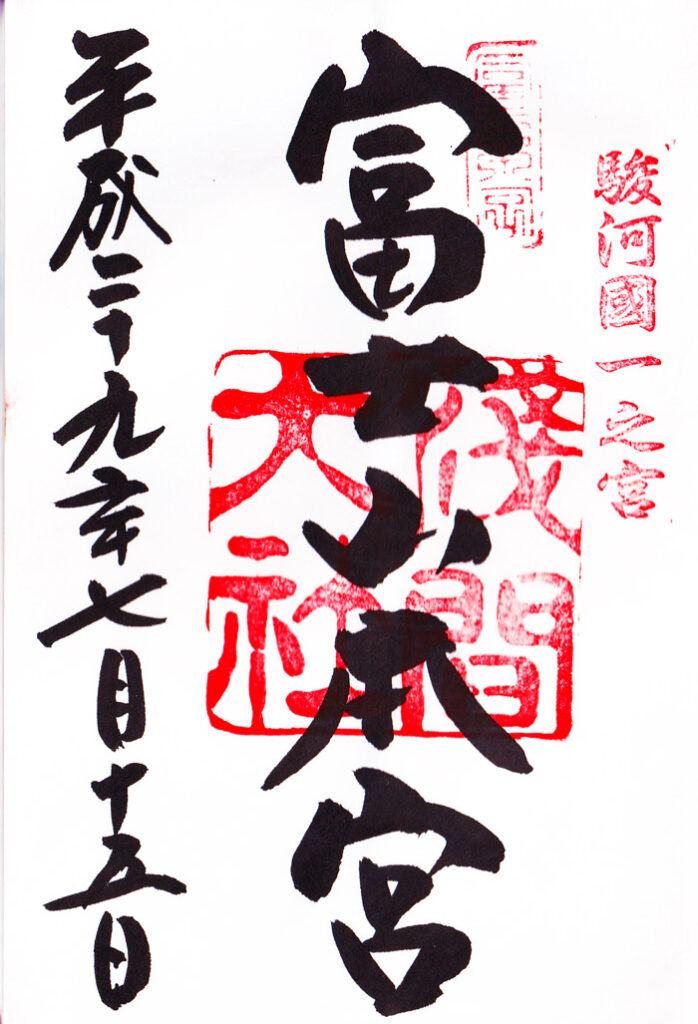 駿河國一之宮
富士山本宮
淺間大社
平成二十九年七月十五日